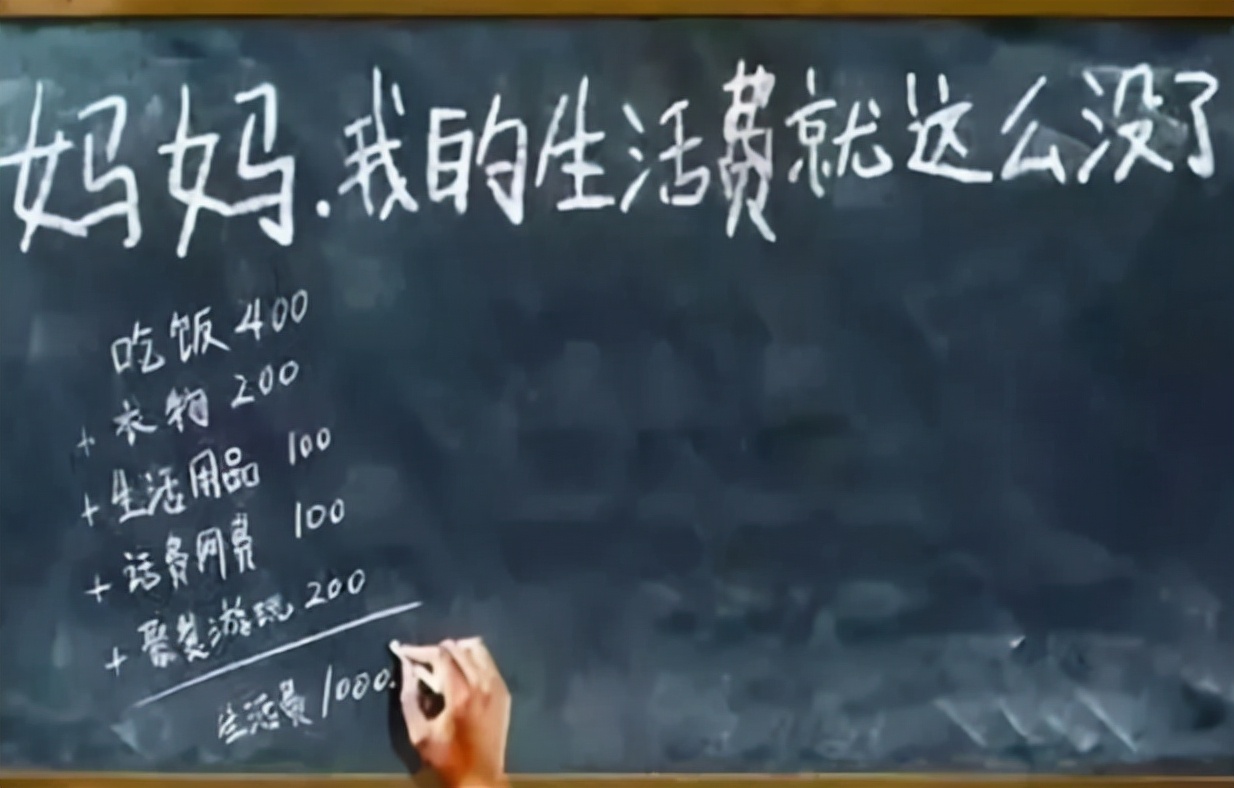 妈妈.我的生活费就这么没了
吃饭 400
+ 衣物 200
+ 生活用品 100
+ 话费网费 100
+ 聚餐游玩 200
生活费 1000.